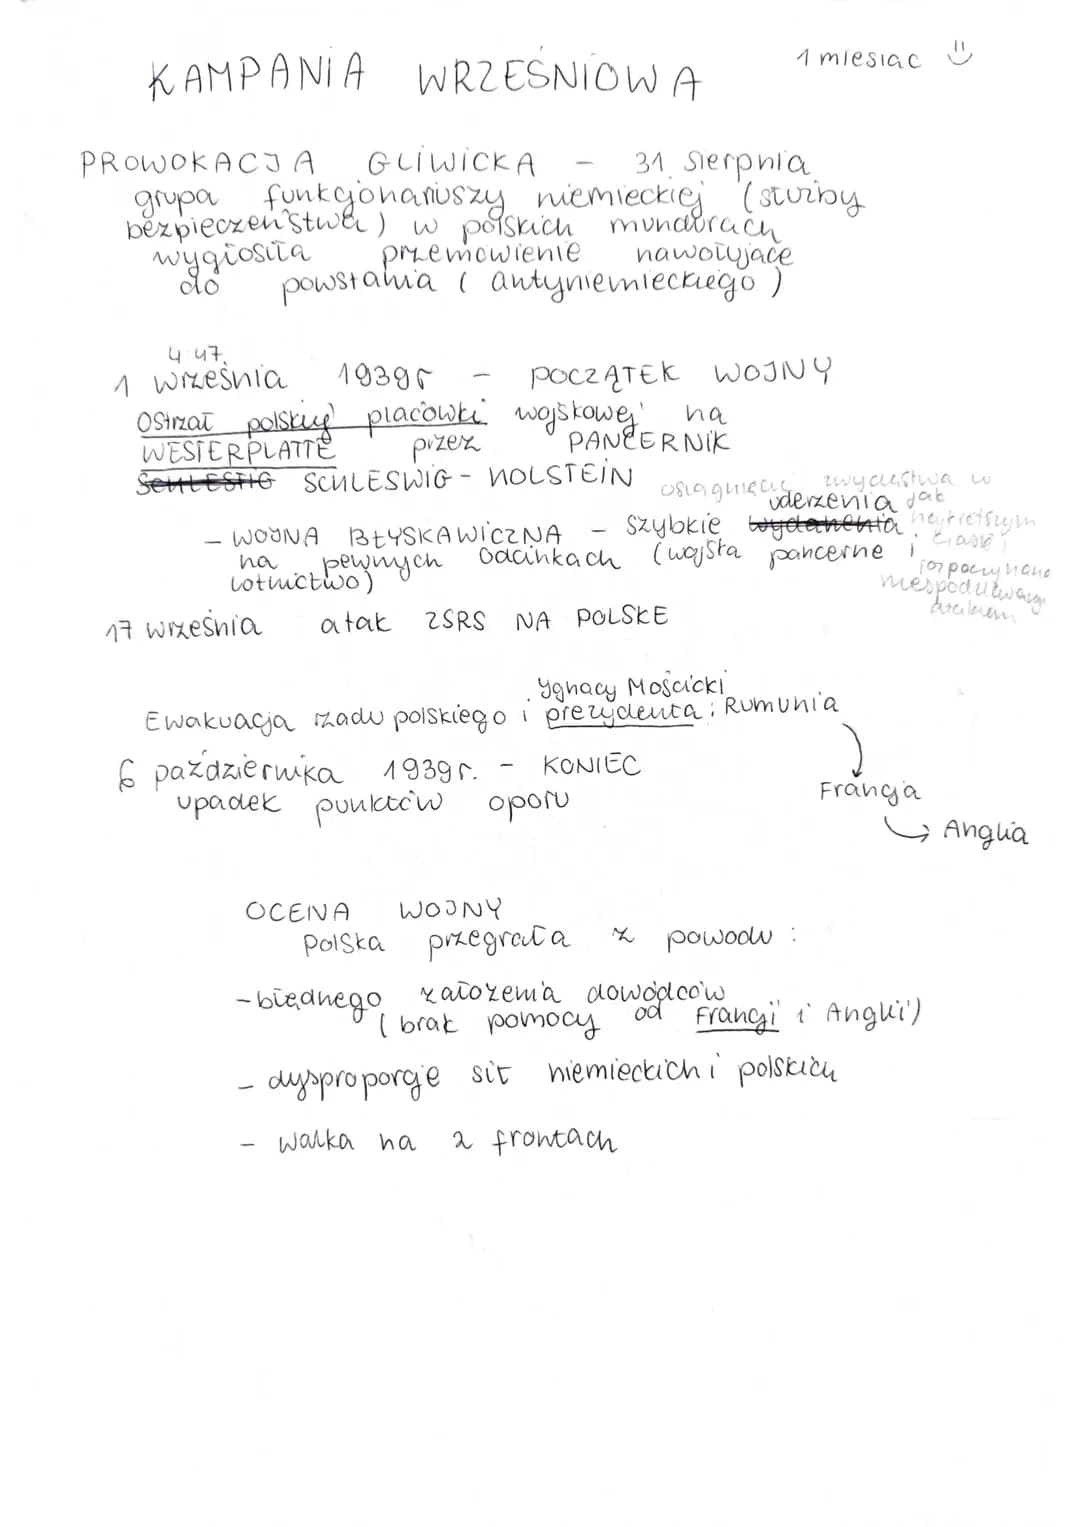 KAMPANIA WRZEŚNIOWA
1 miesiąc
PROWOKACJA GLIWICKA - 31 sierpnia
grupa funkcjonariuszy niemieckiej (służby
bezpieczeństwa) w polskich mundurach
wygłosiła przemówienie nawołujące
do powstania (antyniemieckiego)
4:47
1 września 1939r - POCZĄTEK WOJNY
Ostrzał polskiej placówki wojskowej na
WESTERPLATTE przez PANCERNIK
SCHLESWIG-HOLSTEIN
osiągnięcie zwycięstwa w
uderzenia jak
- WOJNA BŁYSKAWICZNA - Szybkie najkrótszym
na pewnych odcinkach (wojska pancerne i czasie
lotnictwo) rozpoczynane
niespodziewanym
atakiem
17 września atak ZSRS NA POLSKĘ
Ygnacy Mościcki
Ewakuacja rządu polskiego i prezydenta: Rumunia
6 października 1939r. - KONIEC
upadek punktów oporu
Francja
Anglia
OCENA WOJNY
Polska przegrała z powodu:
- błędnego założenia dowódców
(brak pomocy od Francji i Anglii)
- dysproporcje sił niemieckich i polskich
- walka na 2 frontach